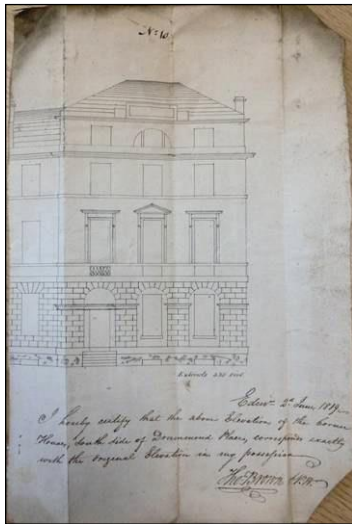 No. 10.
Edinr. 2d. June 1819.
I hereby certify that the above Elevation of the corner
House, South Side of Drummond Place, corresponds exactly
with the original Elevation in my possession
Thos. Brown